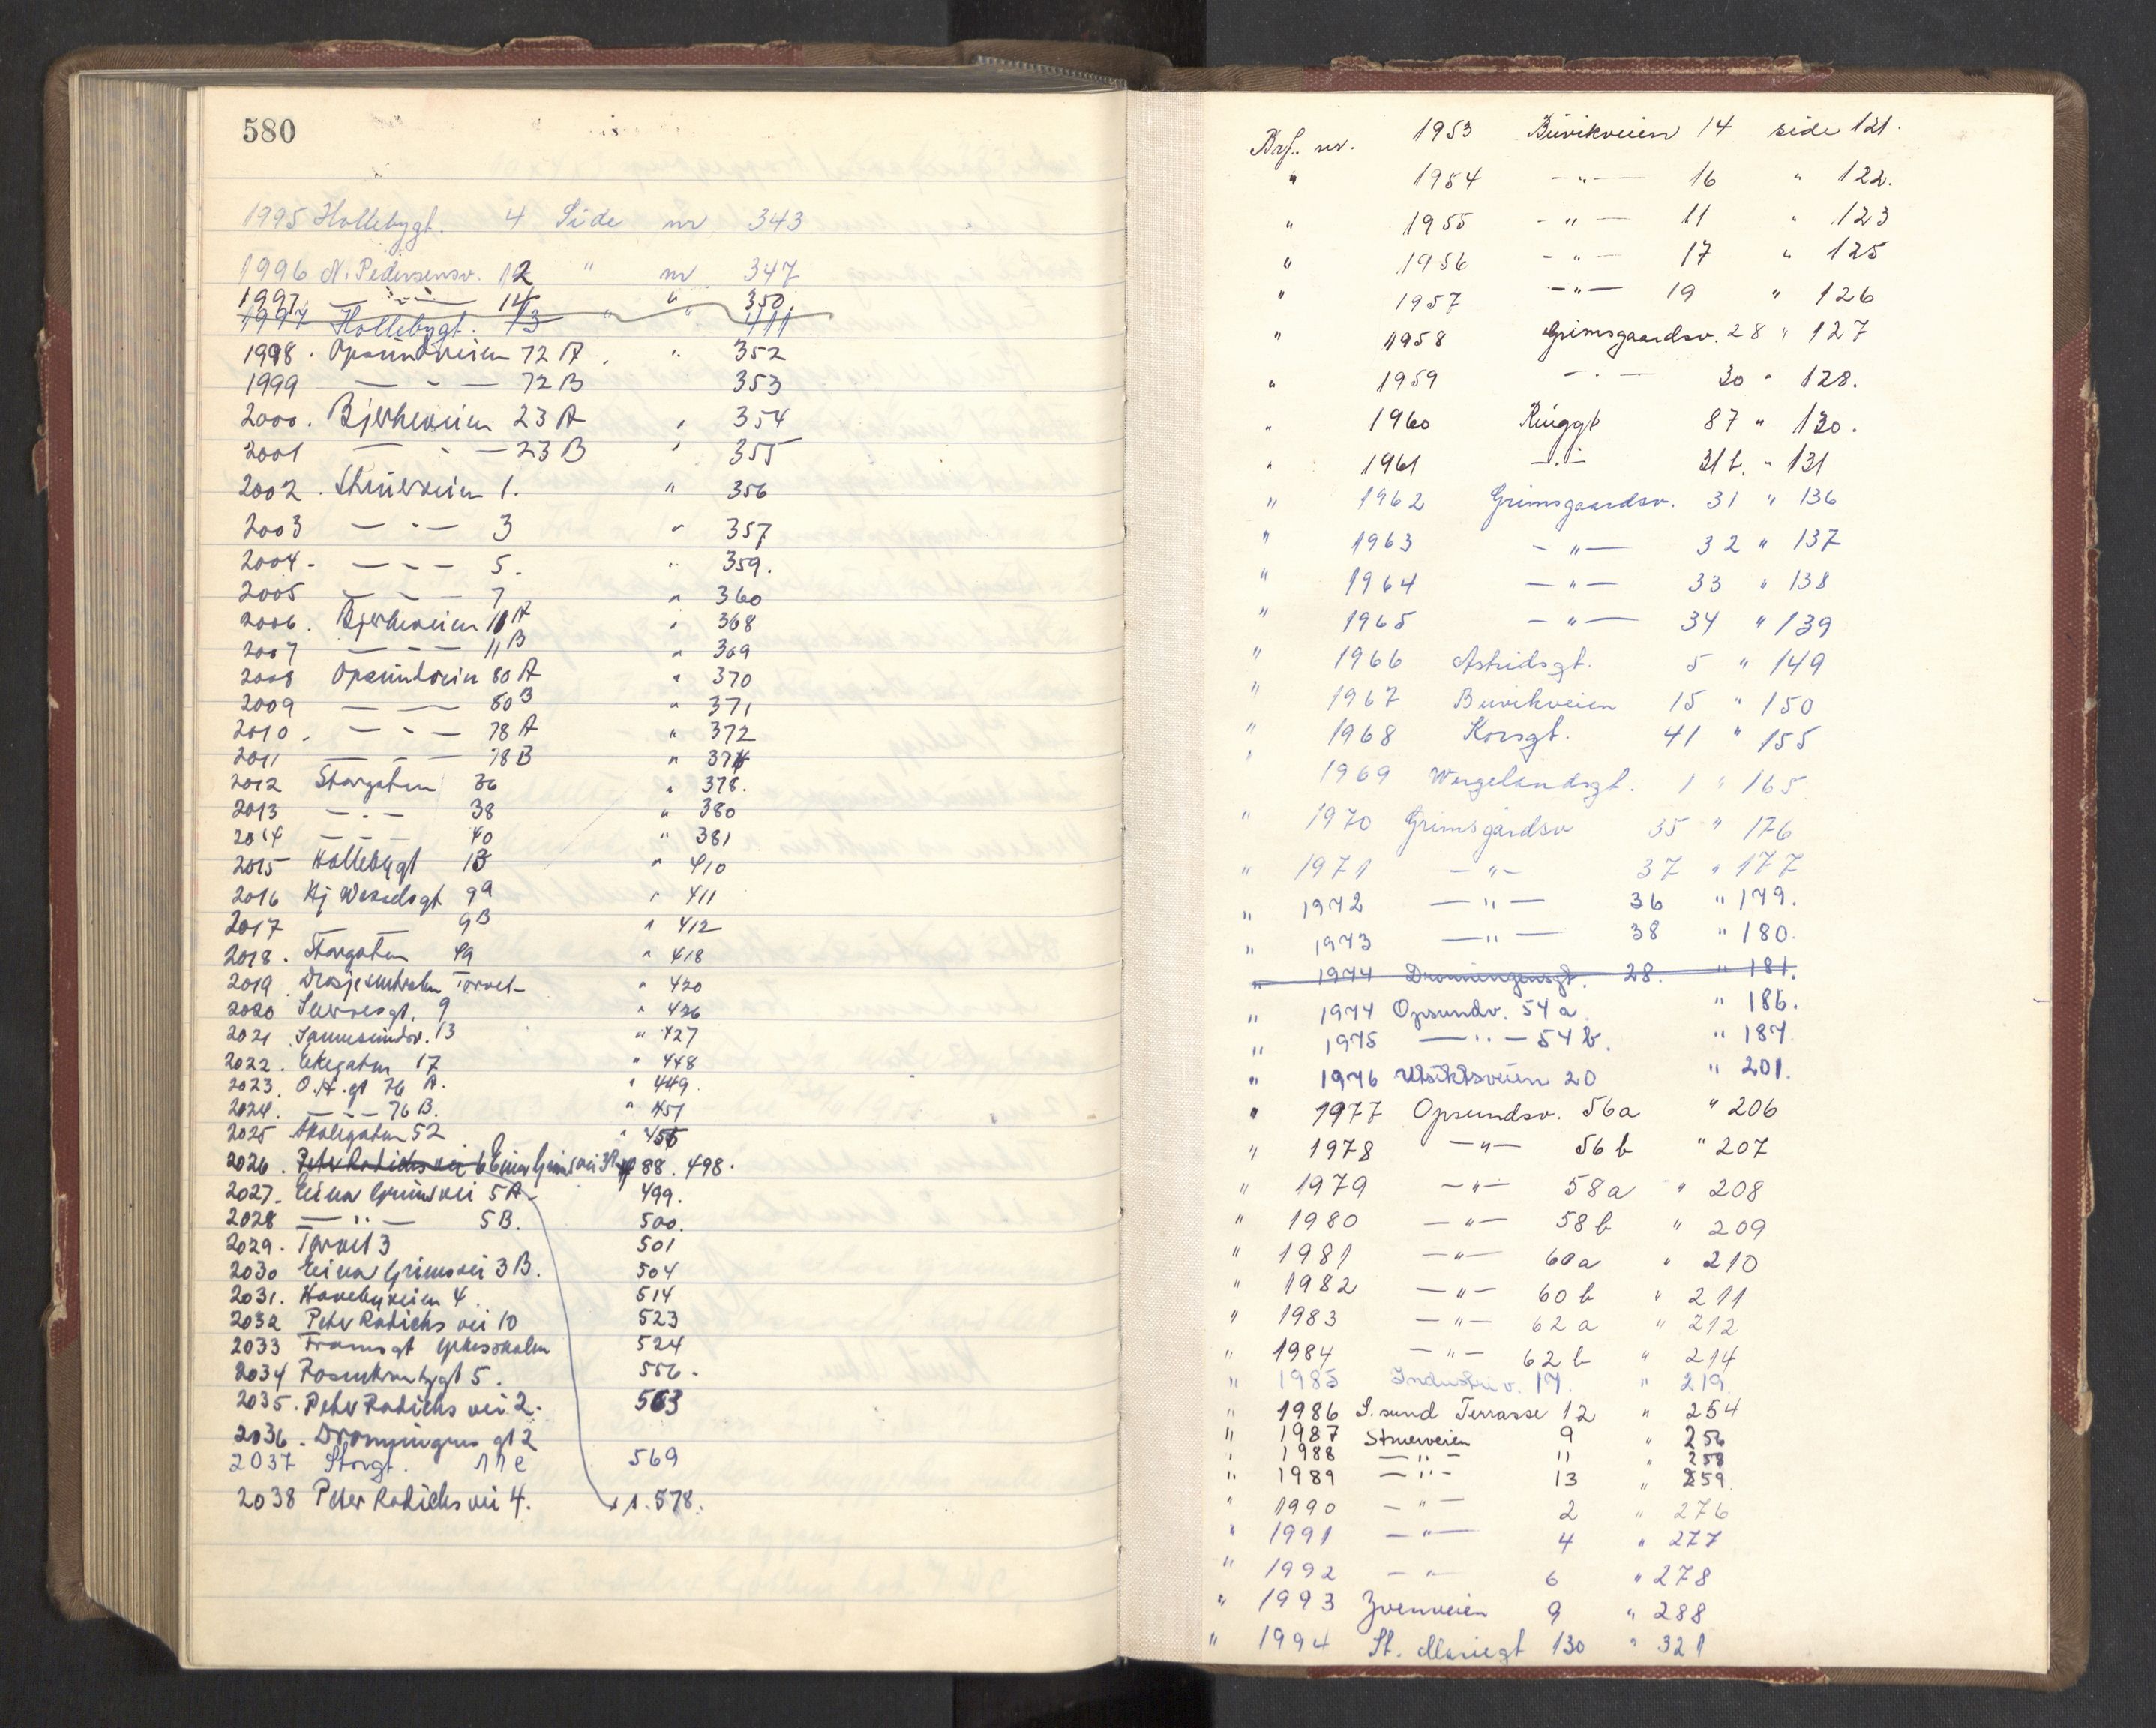 580
1995 Hollebygt. 4 Side nr 343
1996 N. Pedersensv. 12 " nr 347
1997 — " — 14 " 350
1997 Hollebygt. 13 " " 411
1998. Opsundveien 72 A. " 352
1999 — " — 72 B 353
2000. Bjerkeveien 23 A " 354
2001 — " — 23 B " 355
2002. Struerveien 1. " 356
2003 — " — 3 " 357
2004 - — - — 5. " 359.
2005 — - — 7 " 360
2006. Bjerkeveien 11 A " 368
2007 — - — 11 B " 369
2008 Opsundveien 80 A " 370
2009 — — 80 B " 371
2010. — - — 78 A " 372
2011 — - — 78 B " 374
2012 Storgaten 36 " 378.
2013 — . — 38 " 380
2014 — - — 40 " 381
2015 Hollebygt 13 " 410
2016 Hj Wesselsgt 9a " 411
2017 — — 9B " 412
2018. Storgaten 49 " 418
2019 Drosjesentralen Torvet " 420
2020 9 " 426
2021 Sannesundsv. 13 " 427
2022. Ekegaten 17 " 448
2023. O.H. gt 76 A. " 449.
2024. — - — 76 B. " 451
2025 Skolegaten 52 " 456
2026. Peter Radichs vei 6 Einar Grims vei 3A 88. 498.
2027. Einar Grims vei 5A 499.
2028 — " — 5B. 500.
2029. Torvet 3 501
2030 Einar Grims vei 3B. 504
2031. Havebyveien 4. 514
2032 Peter Radichs vei 10 523
2033 Framsgt Yrkesskolen 524
2034 Rosenkrantzgt 5. 556.
2035. Peter Radichs vei 2. 563
2036. Dronningens gt 2
2037 Storgt. 11 c 569
2038 Peter Radichs vei 4. 1. 578.
Brf. nr. 1953 Buvikveien 14 side 121.
" 1954 — " — 16 " 122.
" 1955 - " — 11 " 123
" 1956 - " — 17 " 125
" 1957 — " — 19 " 126
" 1958 Grimsgaardsv. 28 " 127
" 1959 — " — 30 " 128.
" 1960 Ringgt 87 " 130.
" 1961 — " — 31 b. " 131
" 1962 Grimsgaardsv. 31 " 136
" 1963 — " — 32 " 137
" 1964 — " — 33 " 138
" 1965 — " — 34 " 139
" 1966 Astridsgt. 5 " 149
" 1967 Buvikveien 15 " 150
" 1968 Korsgt. 41 " 155
" 1969 Wergelandsgt. 1 " 165
" 1970 Grimsgårdsv 35 " 176
" 1971 — " — 37 " 177
" 1972 — " — 36 " 179.
" 1973 — " — 38 " 180.
" 1974 Dronningensgt. 28. " 181.
" 1974 Opsundv. 54 a. " 186.
" 1975 — " — 54 b. " 187
" 1976 Utsiktsveien 20 " 201.
" 1977 Opsundsv. 56a " 206
" 1978 — " — 56 b " 207
" 1979 — " — 58a " 208
" 1980 — " — 58 b " 209
" 1981 — " — 60a " 210
" 1982 — " — 60 b " 211
" 1983 — " — 62 a " 212
" 1984 — " — 62 b " 214
" 1985 Industriv. 17. " 219
" 1986 S.sund Terrasse 12 " 254
" 1987 Struerveien 9 " 256
" 1988 — " — 11 " 258
" 1989 — " — 13 " 259.
" 1990 — " — 2 " 276
" 1991 — " — 4 " 277
" 1992 — " — 6 " 278
" 1993 Zvenveien 9 " 288
" 1994 St. Mariegt 130 " 321